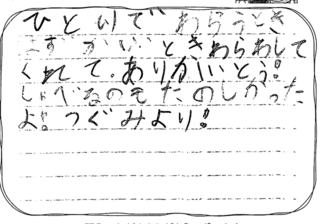 ひとりで わらうとき
むずかしいときわらわして
くれて.ありがいとう!
しゃべるのもたのしかった
よ! つぐみより!